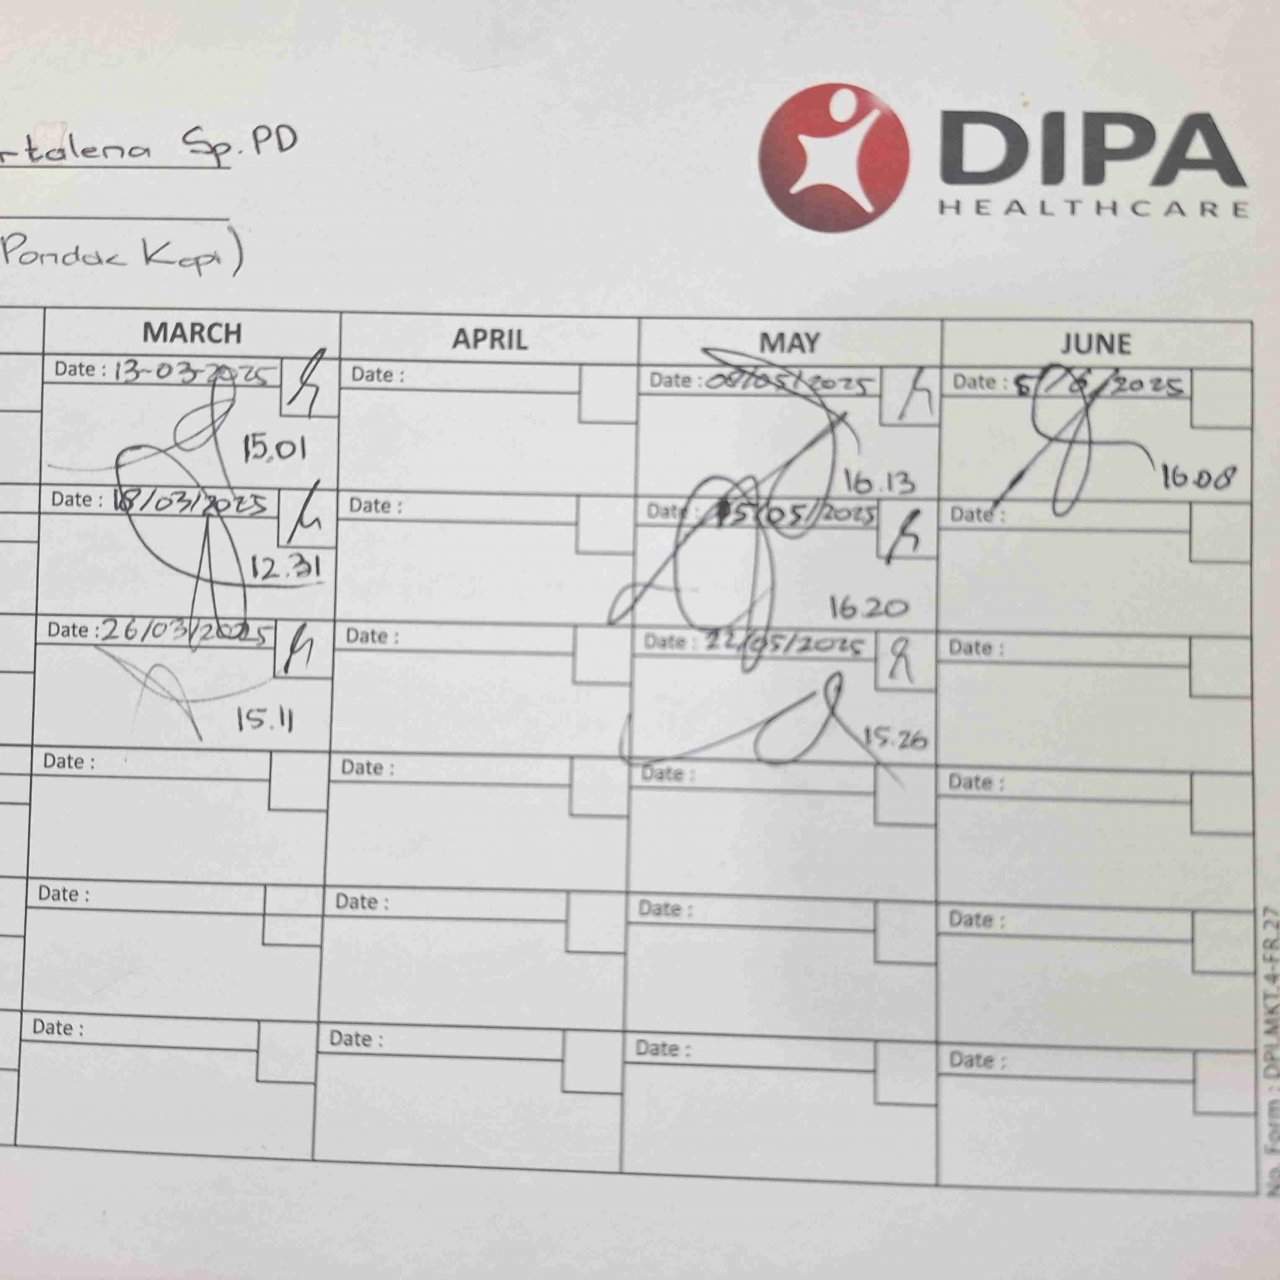 rtalena Sp.PD
DIPA
HEALTHCARE
(Pondok Kopi)
MARCH APRIL MAY JUNE
Date : 13-03-2025 Date : Date : 08/05/2025 Date : 5/6/2025
15.01 16.13 16.08
Date : 18/03/2025 Date : Date : 15/05/2025 Date :
12.31 16.20
Date : 26/03/2025 Date : Date : 22/05/2025 Date :
15.11 15.26
Date : Date : Date : Date :
Date : Date : Date : Date :
Date : Date : Date : Date :
No. Form : DPI.MKT.4-FR.27